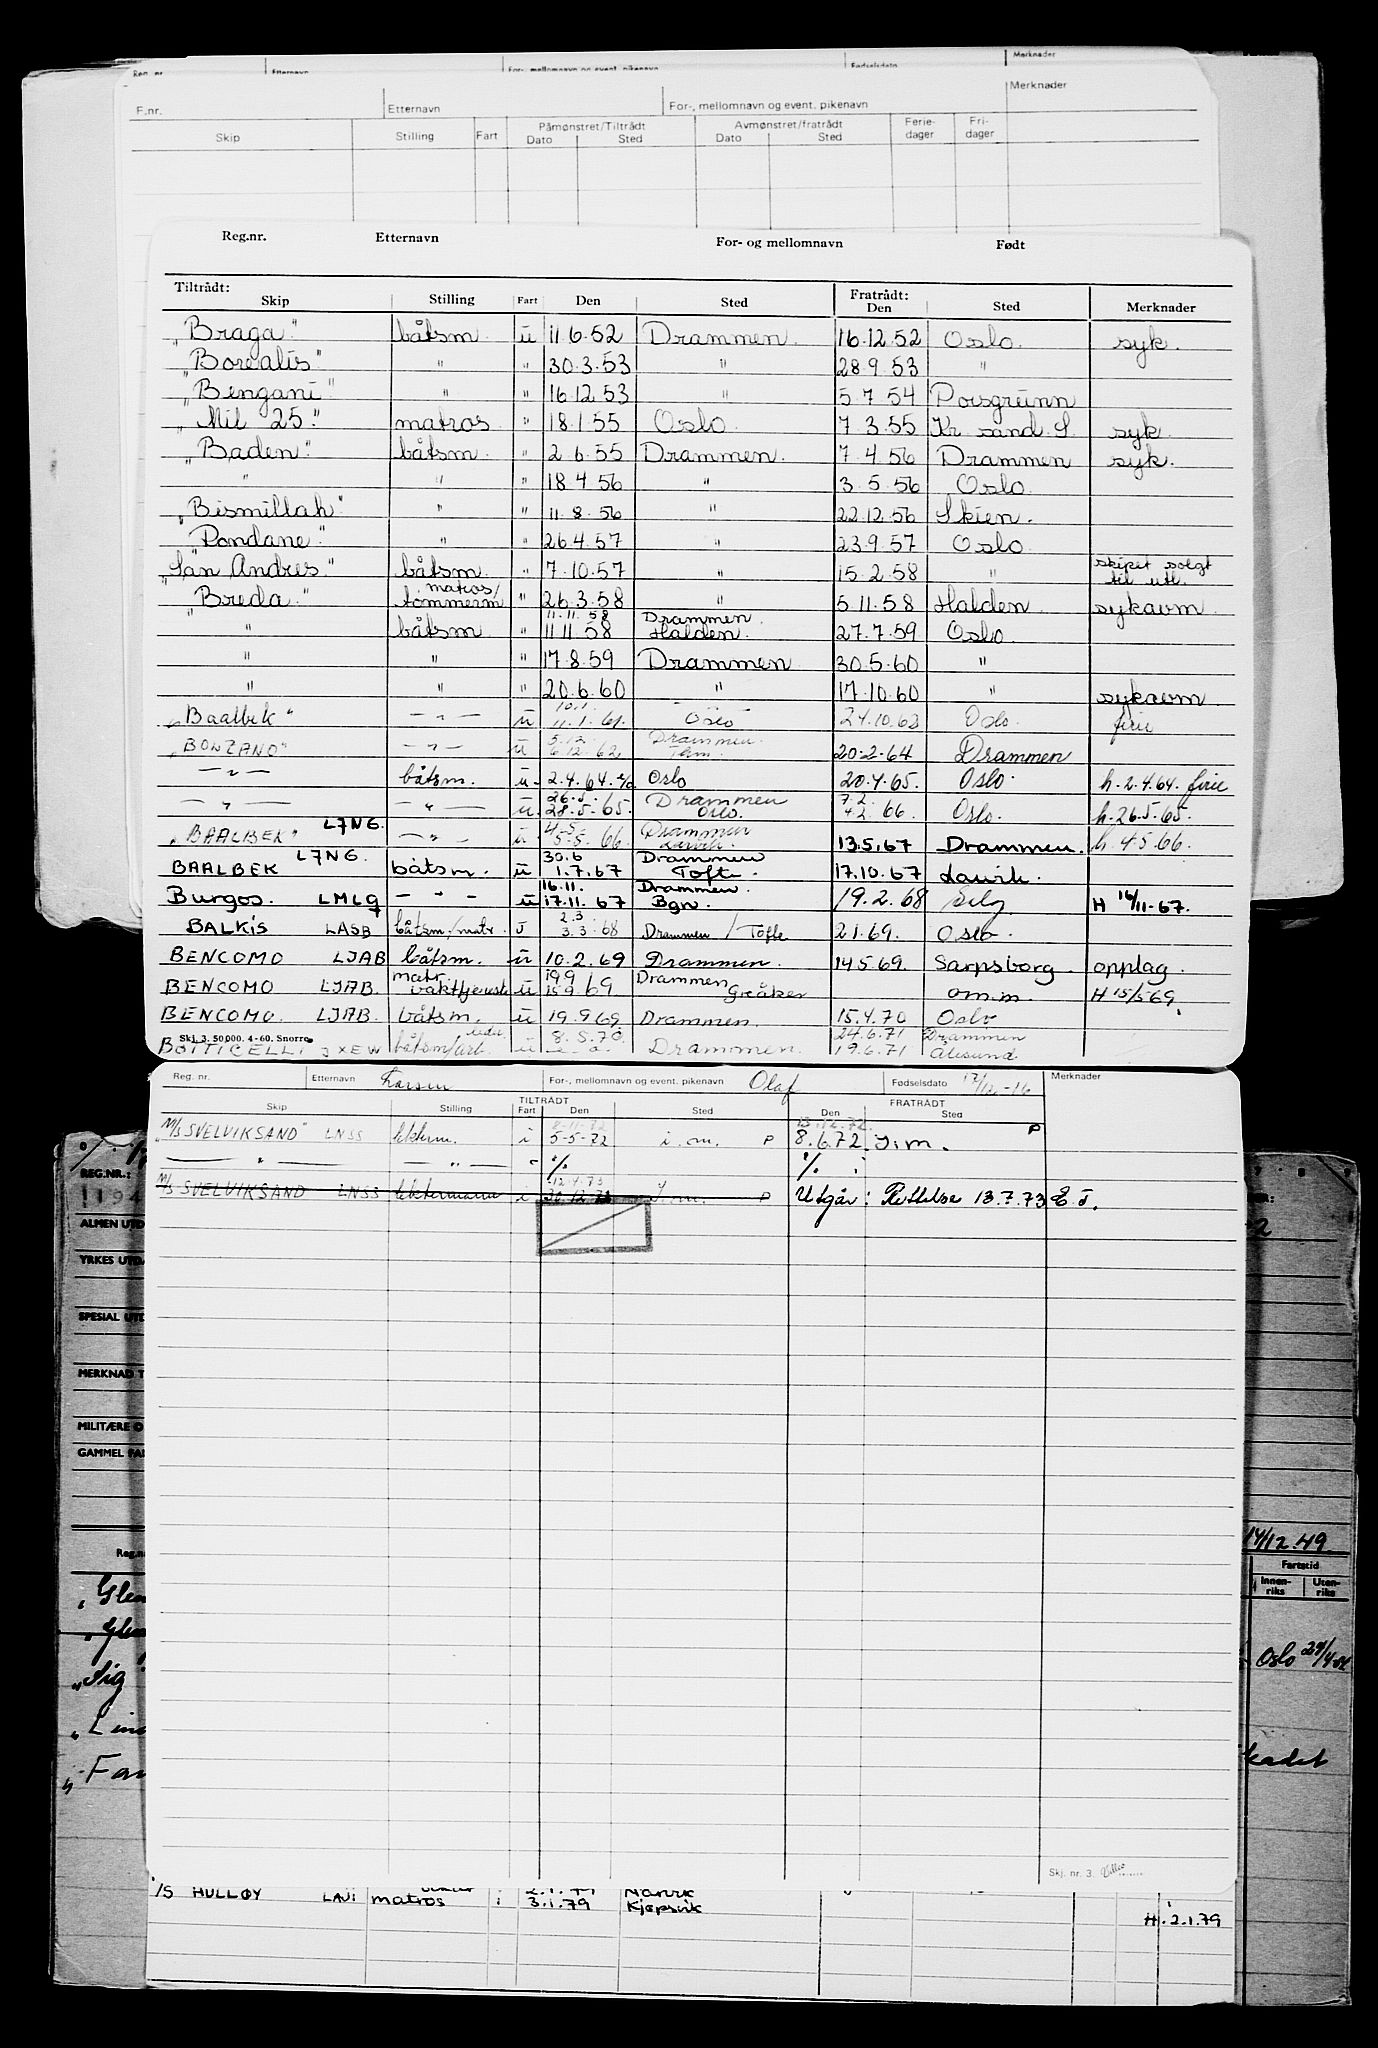 Reg. nr. Etternavn For-, mellomnavn og event. pikenavn Fødselsdato Merknader
F.nr. Etternavn For-, mellomnavn og event. pikenavn Merknader
Skip Stilling Fart Påmønstret/Tiltrådt Dato Sted Avmønstret/fratrådt Dato Sted Ferie-dager Fri-dager
Reg.nr. Etternavn For- og mellomnavn Født
Tiltrådt: Fratrådt:
Skip Stilling Fart Den Sted Den Sted Merknader
"Braga" båtsm. u 11.6.52 Drammen. 16.12.52 Oslo. syk.
"Borealis" " " 30.3.53 " 28.9.53 "
"Bengani" " " 16.12.53 " 5.7.54 Porsgrunn
"Mil 25" matros " 18.1.55 Oslo 7.3.55 Kr sand S. syk.
"Baden" båtsm. " 2.6.55 Drammen. 7.4.56 Drammen syk.
" " " 18.4.56 " 3.5.56 Oslo
"Bismillah" " " 11.8.56 " 22.12.56 Skien.
"Rondane" " " 26.4.57 " 23.9.57 Oslo
"San Andres" båtsm. " 7.10.57 " 15.2.58 " skipet solgt til utl.
"Breda" matros/tømmerm " 26.3.58 " 5.11.58 Halden sykavm.
11.11.58 Drammen.
" båtsm. " 11.11.58 Halden. 27.7.59 Oslo
" " " 17.8.59 Drammen 30.5.60 "
" " " 20.6.60 " 17.10.60 " sykavm
10.1.
"Baalbek" — " — u 11.1.61 Oslo 24.10.62 Oslo. ferie
5.12. Drammen.
"BOLZANO" — " — u 6.12.62 20.2.64 Drammen
— " — båtsm. u. 2.4.64 Oslo 20.4.65. Oslo. h. 2.4.64. ferie
26.5. Drammen 7.2.
— " — — " — u. 28.5.65. Oslo. 4.2.66. Oslo. h. 26.5.65.
4.5. Drammen
"BAALBEK" LJNG. — " u 5.5.66 Larvik. 13.5.67 Drammen. h. 4.5.66.
30.6 Drammen
BAALBEK LJNG. båtsm. u 1.7.67 Tofte. 17.10.67 Larvik.
16.11. Drammen.
Burgos. LMLQ — " — u 17.11.67 Bgn. 19.2.68 H 16/11-67.
2.3
BALKIS LASB båtsm./matr. u 3.3.68 Drammen / Tofte 2.1.69. Oslo.
BENCOMO LJAB båtsm. u 10.2.69 Drammen. 14.5.69. Sarpsborg opplag.
BENCOMO LJAB. matr. vakttjeneste u 15.9.69 Drammen Greåker om.m. H 15/5 69
BENCOMO. LJAB. båtsm. u 19.9.69. Drammen. 15.4.70 Oslo
Skj. 3. 50.000. 4-60. Snorre
8.5.70. 24.6.71 Drammen
BOTTICELLI JXEW båtsm/arb.leder u Drammen. 19.6.71 Ålesund.
Reg. nr. Etternavn Larsen For-, mellomnavn og event. pikenavn Olaf Fødselsdato 17/12-16 Merknader
TILTRÅDT FRATRÅDT
Skip Stilling Fart Den Sted Den Sted
8-11-72 13.12.72.
"M/S SVELVIKSAND" LNSS lektrm. i 5-5-72 i.m. P 8.6.72. I.m. P
— " — — " — " %. %.
12.4.73
M/S SVELVIKSAND LNSS lektermann i 20.12.72 I.m. P Utgår: Rettelse 13.7.73 E.J.
Skj. nr. 3.
REG.NR.:
ALMEN UTD
YRKES UTDA
SPESIAL UTD
MERKNAD T
MILITÆRE O
GAMMEL FA
14/12.49.
Reg.nr Fartstid
Innen-riks Uten-riks
"Sig
"Lin
"Fan
kadet
2.1.79 Narvik
M/S HULLØY LAUI matros i 3.1.79 Kjøpsvik H. 2.1.79